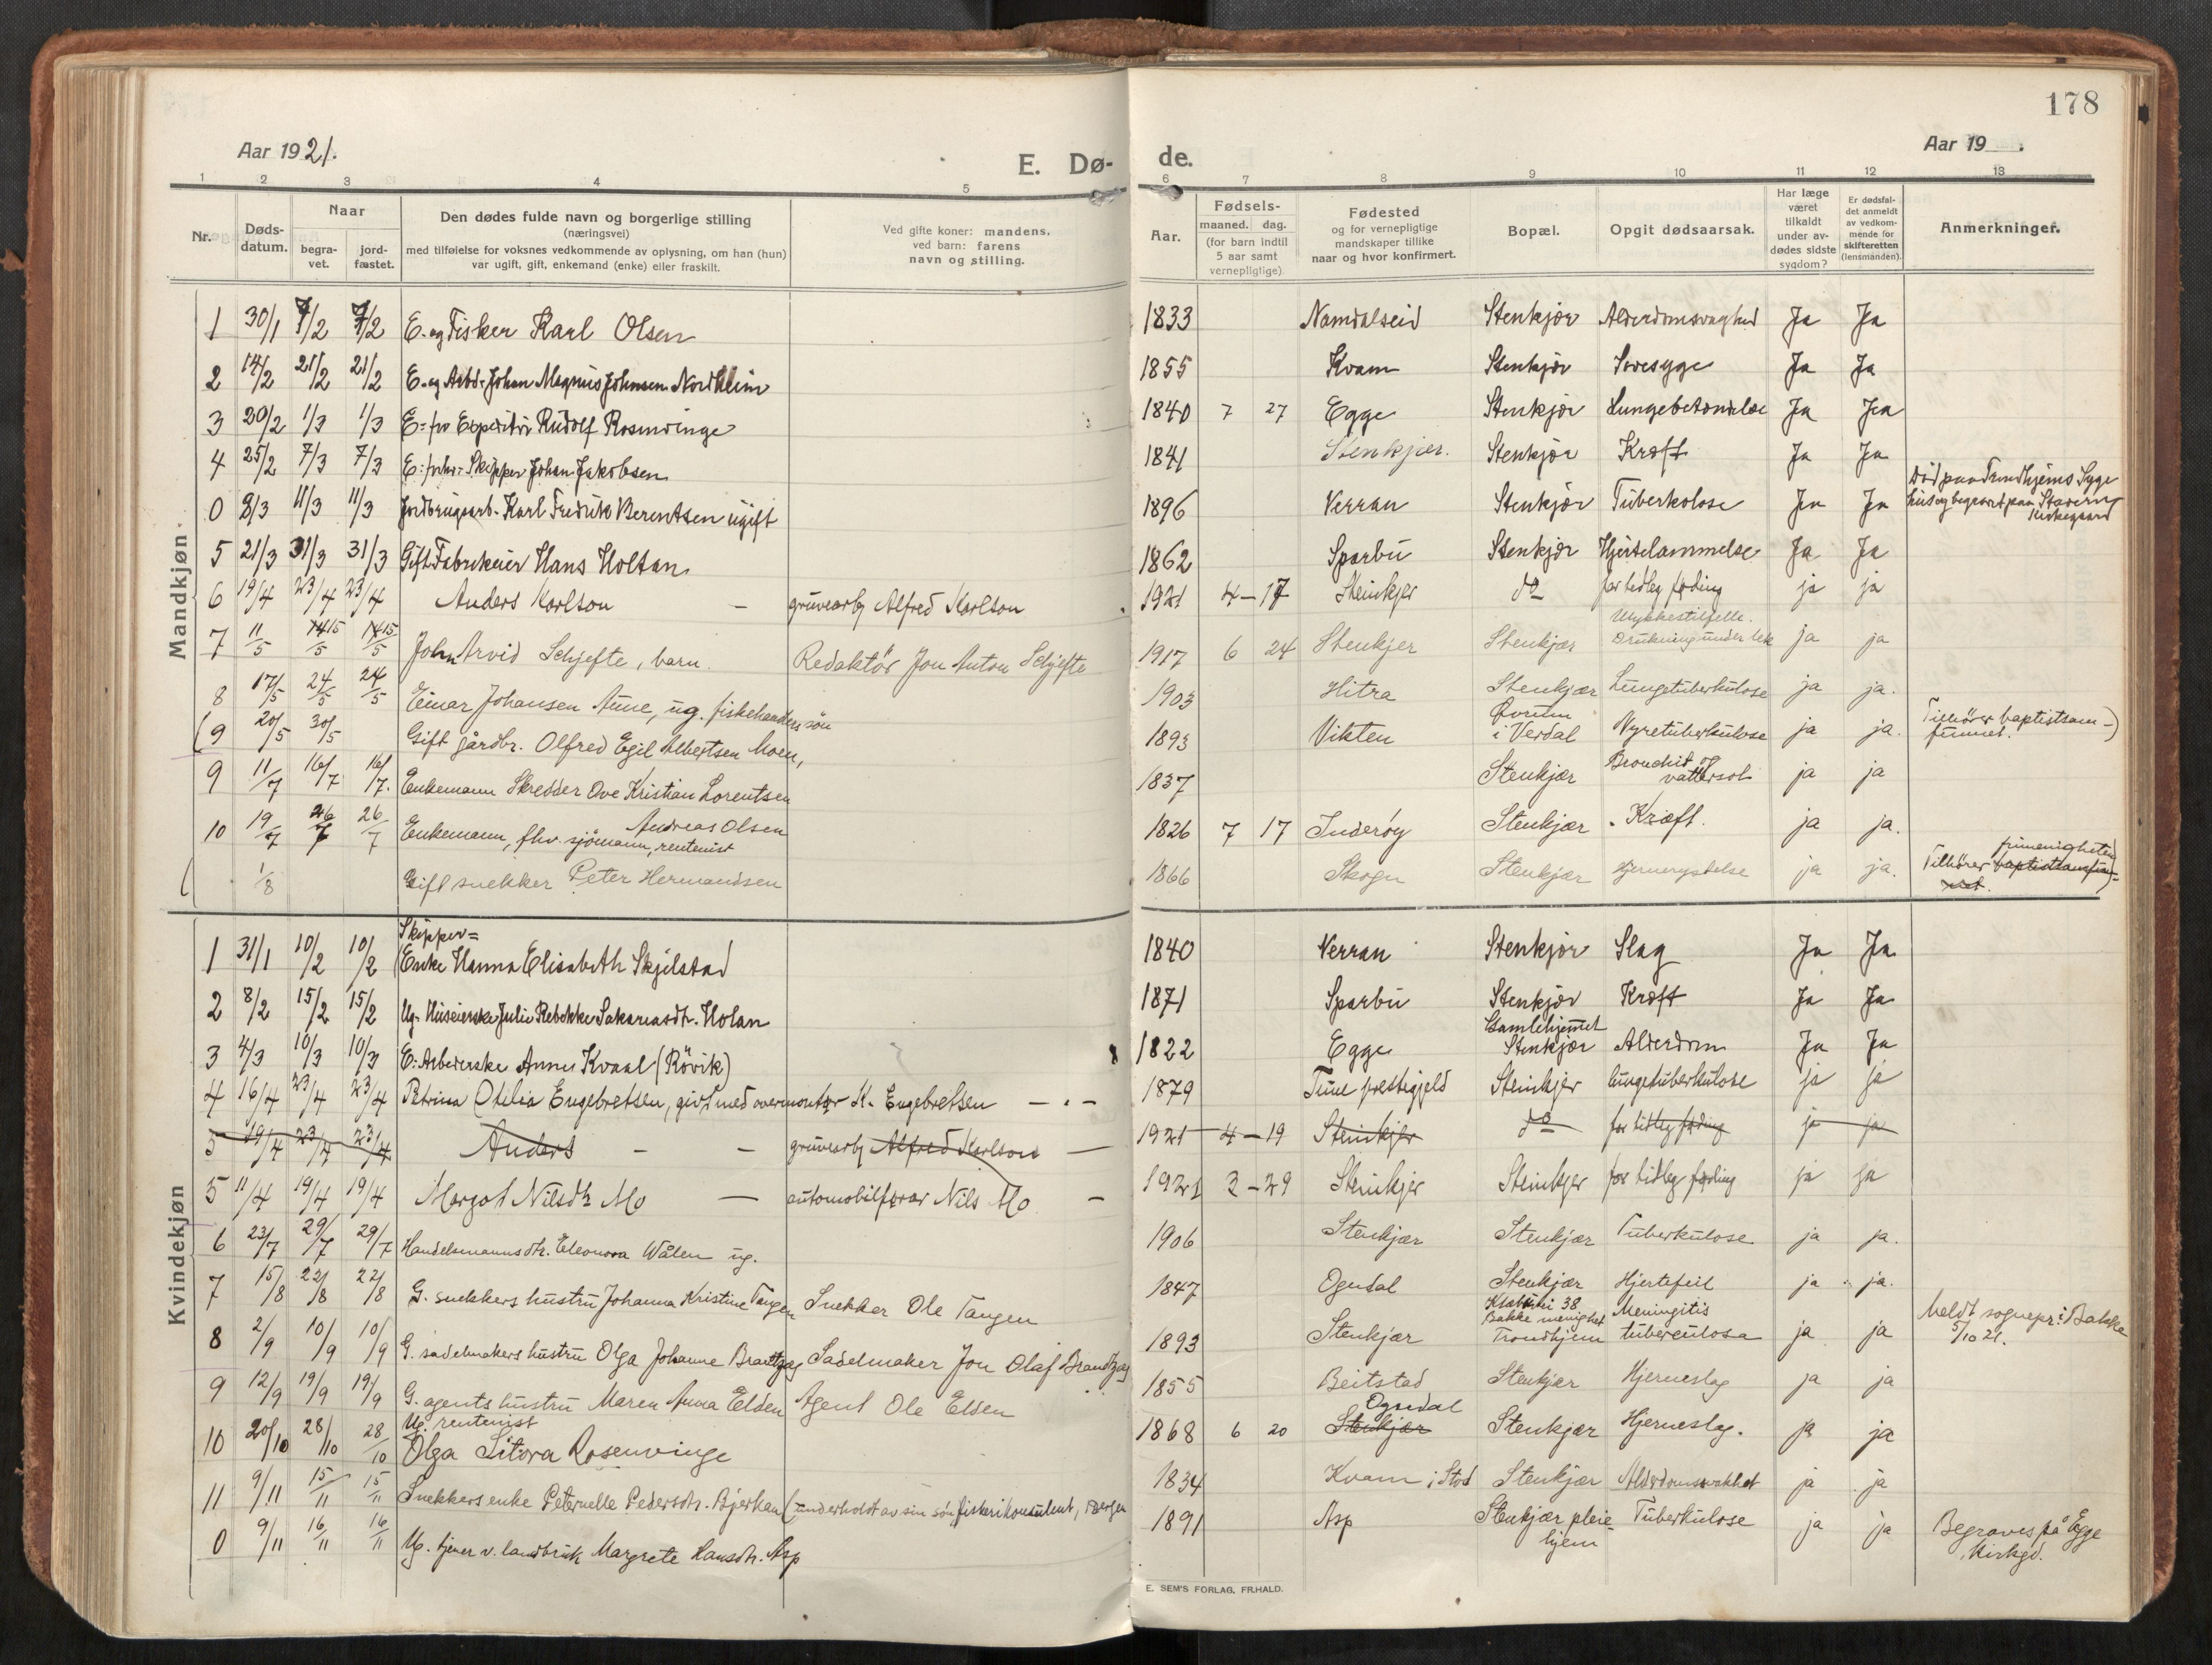 178
Aar 1921.
E. Dø-
de.
Aar 19 .
1 2 3 4 5 6 7 8 9 10 11 12 13
Nr.
Døds-
datum.
Naar
begra-
vet.
jord-
fæstet.
Den dødes fulde navn og borgerlige stilling
(næringsvei)
med tilføielse for voksnes vedkommende av oplysning, om han (hun)
var ugift, gift, enkemand (enke) eller fraskilt.
Ved gifte koner: mandens,
ved barn: farens
navn og stilling.
Aar.
Fødsels-
maaned. dag.
(for barn indtil
5 aar samt
vernepligtige)
Fødested
og for vernepligtige
mandskaper tillike
naar og hvor konfirmert.
Bopæl.
Opgit dødsaarsak.
Har læge
været
tilkaldt
under av-
dødes sidste
sygdom?
Er dødsfal-
det anmeldt
av vedkom-
mende for
skifteretten
(lensmanden).
Anmerkninger.
Mandkjøn.
1 30/1 7/2 7/2 E. og Fisker Karl Olsen 1833 Namdalseid Stenkjær Alderdomsvaghed Ja Ja
2 14/2 21/2 21/2 E. og Arbd. Johan Magnus Johnsen Nordheim 1855 Kvam Stenkjær Sovesyge Ja Ja
3 20/2 1/3 1/3 E. fv Expeditør Rudolf Rosenvinge 1840 7 27 Egge Stenkjær Lungebetændelse Ja Ja
4 25/2 7/3 7/3 E. fvhr. Skipper Johan Jakobsen 1841 Stenkjær. Stenkjær Kræft Ja Ja
0 8/3 11/3 11/3 Jordbrugsarb. Karl Fredrik Berentsen ugift 1896 Verran Stenkjær Tuberkolose Ja Ja Død paa Trondhjems Syge
hus og begravet paa Stavern
Kirkegaard
5 21/3 31/3 31/3 Gift Fabrikeier Hans Holtan 1862 Sparbu Stenkjær Hjertelammelse Ja Ja
6 19/4 23/4 23/4 Anders Karlson – gruvearb Alfred Karlson 1921 4 – 17 Steinkjer do for tidleg føding ja ja
7 11/5 15/5 15/5 John Arvid Schjefte, barn. Redaktör Jon Anton Schjefte 1917 6 24 Stenkjer Stenkjær Ulykkestilfelle.
Drukning under lek ja ja
8 17/5 24/5 24/5 Einar Johansen Aune, ug. fiskehandlers sön 1903 Hitra Stenkjær Lungetuberkulose ja ja.
(9 20/5 30/5 Gift gårdbr. Olfred Egil Albertsen Moen, 1893 Vikten Ovrum
i Verdal Nyretuberkulose ja ja. Tilhörer baptistsam-
funnet. )
9 11/7 16/7 16/7. Enkemann Skredder Ove Kristian Lorentsen 1837 Stenkjær Bronchit og
vattersot ja ja
10 19/7 26/7 26/7 Andreas Olsen
Enkemann, fhv. sjömann, rentenist 1826 7 17 Inderøy Stenkjær Kræft. ja ja.
( 1/8 Gift snekker Peter Hermandsen 1866 Skogn Stenkjær Hjernerystelse ja ja. frimenigheten
Tilhörer baptistsamfun-
net. )
Kvindekjøn
1 31/1 10/2 10/2 Skipper=
Enke Hanna Elisabeth Skjelstad 1840 Verran Stenkjær Slag Ja Ja
2 8/2 15/2 15/2 Ug. Huseierske Julie Rebekka Sakariasdtr. Holan 1871 Sparbu Stenkjær Kræft Ja Ja
3 4/3 10/3 10/3 E. Arbederske Anne Kvaal (Rövik) 1822 Egge Gamlehjemet
Stenkjær Alderdom Ja Ja
4 16/4 23/4 23/4 Petrina Otilia Engebretsen, givt med overmontør K. Engebretsen – . – 1879 Tune prestegjeld Steinkjer lungetuberkulose ja ja
5 19/4 23/4 23/4 Anders – – gruvearb Alfred Karlson – 1921 4 – 19 Steinkjer do for tidleg føding ja ja
5 11/4 19/4 19/4 Margot Nilsdtr Mo – automobilførar Nils Mo – 1921 3 – 29 Steinkjer Steinkjer for tidleg føding ja ja
6 23/7 29/7 29/7 Handelsmannsdtr. Eleonora Wålen ug. 1906 Stenkjær Stenkjær Tuberkulose ja ja.
7 15/8 22/8 22/8 G. snekkers hustru Johanna Kristine Tangen Snekker Ole Tangen 1847 Ogndal Stenkjær Hjertefeil ja ja.
8 2/9 10/9 10/9 G. sadelmakers hustru Olga Johanne Brandtzæg Sadelmaker Jon Olaf Brandtzæg 1893 Stenkjær 38
Bakke menighet
Trondhjem Meningitis
tuberculosa ja ja Meldt sognepr. i Bakke
5/10 21.
9 12/9 19/9 19/9 G. agents hustru Maren Anna Elden Agent Ole Elden 1855 Beitstad Stenkjær Hjerneslag ja ja
10 20/10 28/10 28/10 Ug. rentenist
Olga Sitora Rosenvinge 1868 6 20 Ogndal
Stenkjær Stenkjær Hjerneslag. ja ja
11 9/11 15/11 15/11 Snekkers enke Peternelle Pedersdtr. Bjerkan (underholdt av sin sön fiskerikonsulent, Bergen 1834 Kvam i Stod Stenkjær Alderdomsvakhet ja ja
0 9/11 16/11 16/11 Ug. tjener v. landbruk Margrete Hansdtr. Asp 1891 Asp Stenkjær pleie-
hjem Tuberkulose ja ja Begraves på Egge
kirkegd.
E. SEM'S FORLAG, FR.HALD.